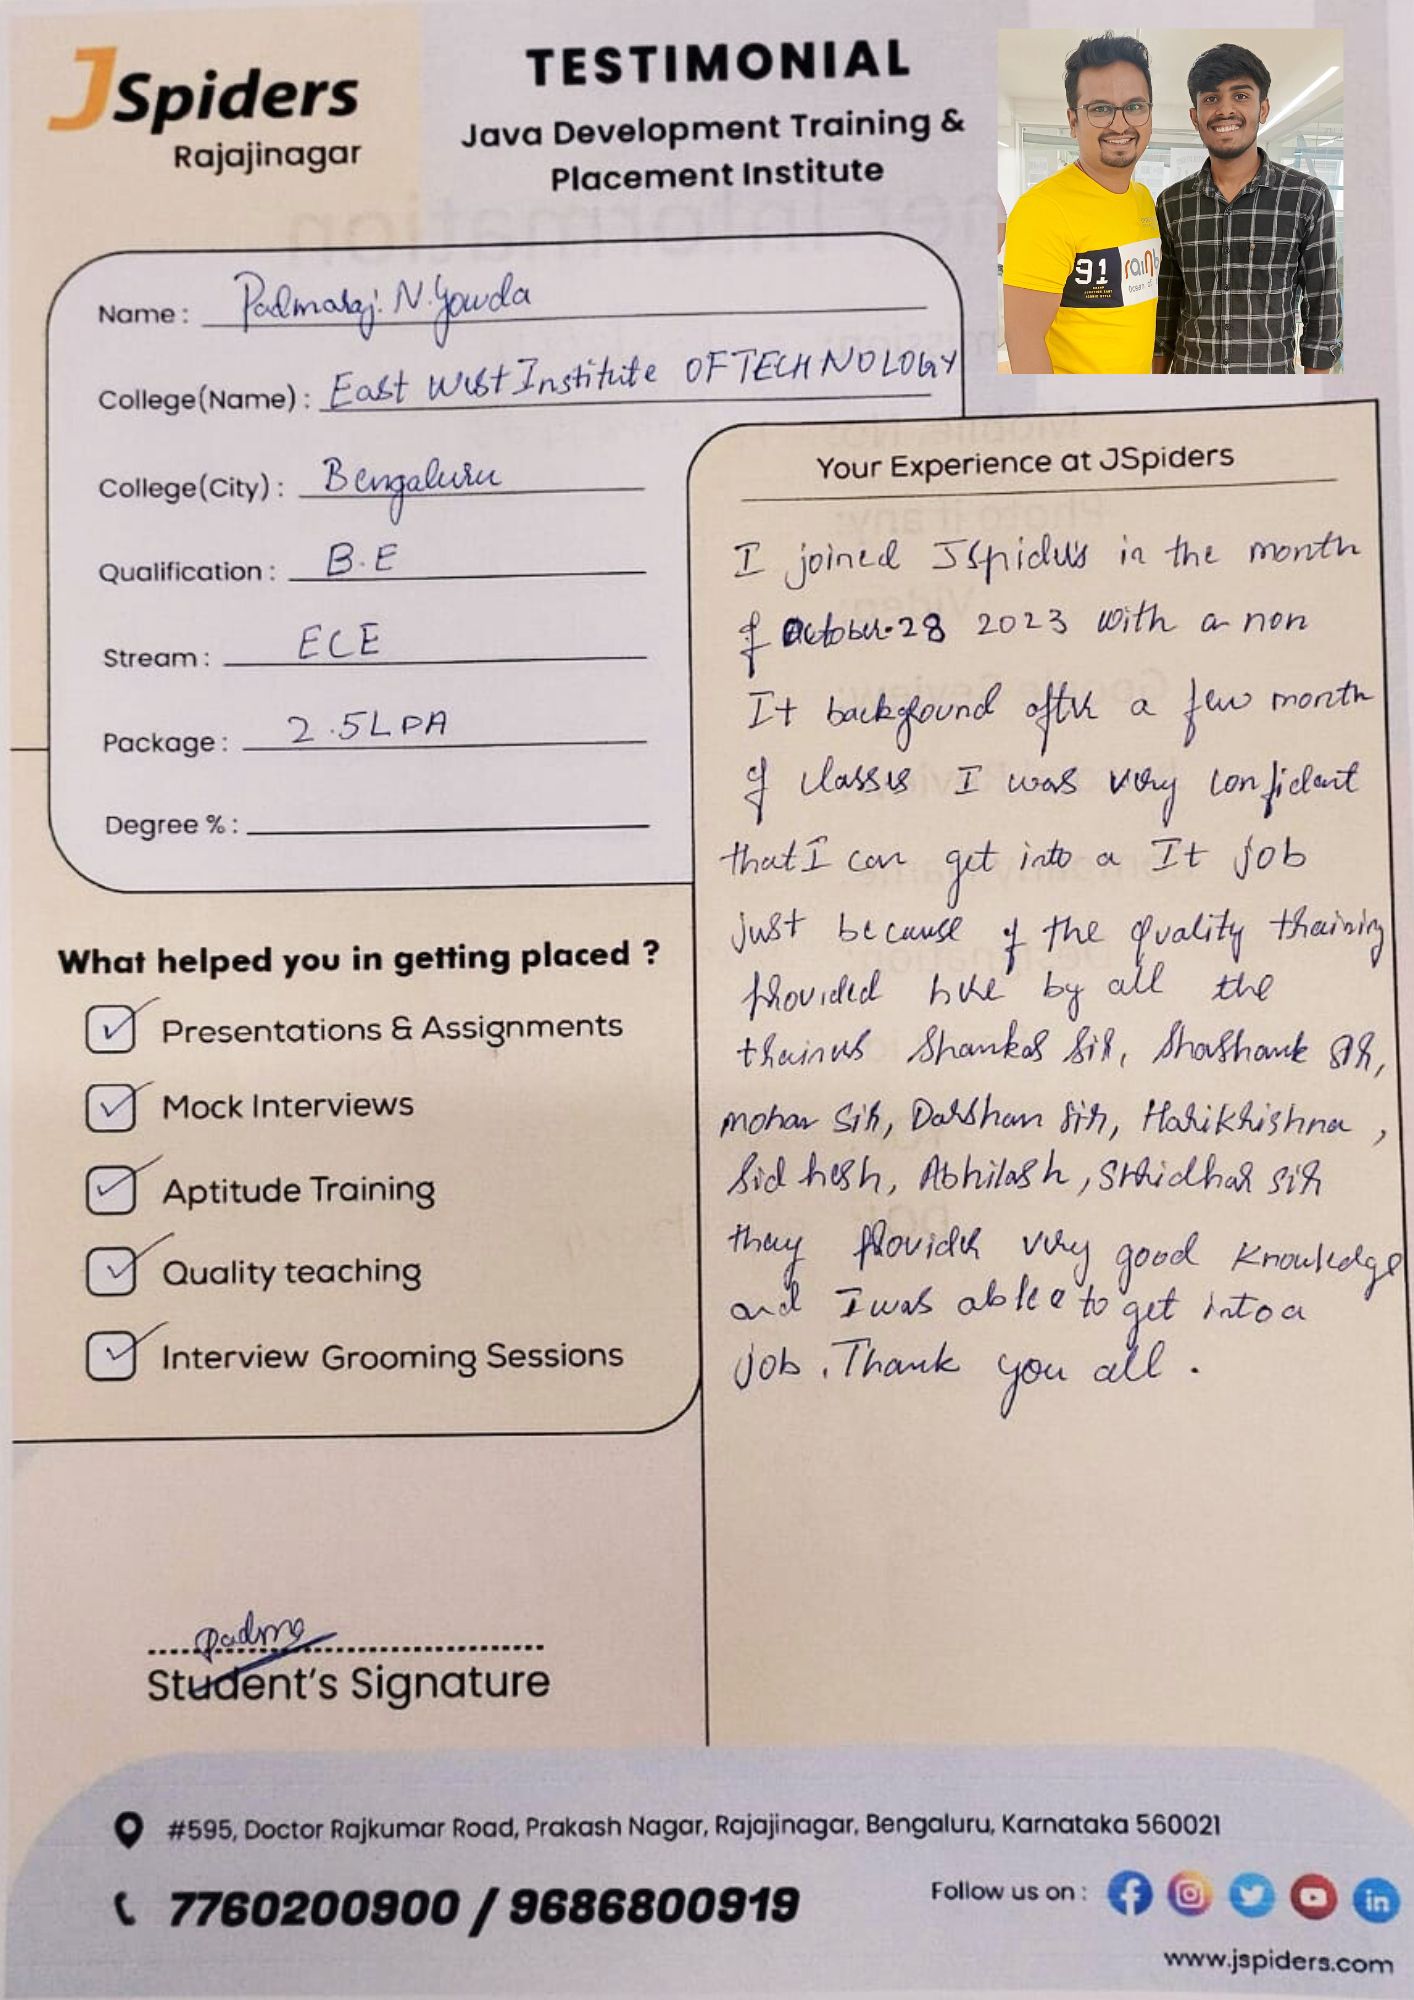 JSpiders
Rajajinagar
TESTIMONIAL
Java Development Training &
Placement Institute
91
Name : Padmaraj. N. Gowda
College(Name) : East West Institute OF TECHNOLOGY
College(City) : Bengaluru
Qualification : B.E
Stream : ECE
Package : 2.5LPA
Degree % :
What helped you in getting placed ?
Presentations & Assignments
Mock Interviews
Aptitude Training
Quality teaching
Interview Grooming Sessions
Your Experience at JSpiders
I joined JSpiders in the month
of October-28 2023 with a non
It background after a few month
of classes I was very confident
that I can get into a It job
just because of the quality training
provided here by all the
trainers Shankar Sir, Shashank sir,
mohan Sir, Darshan sir, Harikrishna ,
Sidhesh, Abhilash, Shridhar sir
they provider very good knowledge
and I was able to get into a
job. Thank you all .
Padma
Student's Signature
#595, Doctor Rajkumar Road, Prakash Nagar, Rajajinagar, Bengaluru, Karnataka 560021
7760200900 / 9686800919
Follow us on :
www.jspiders.com